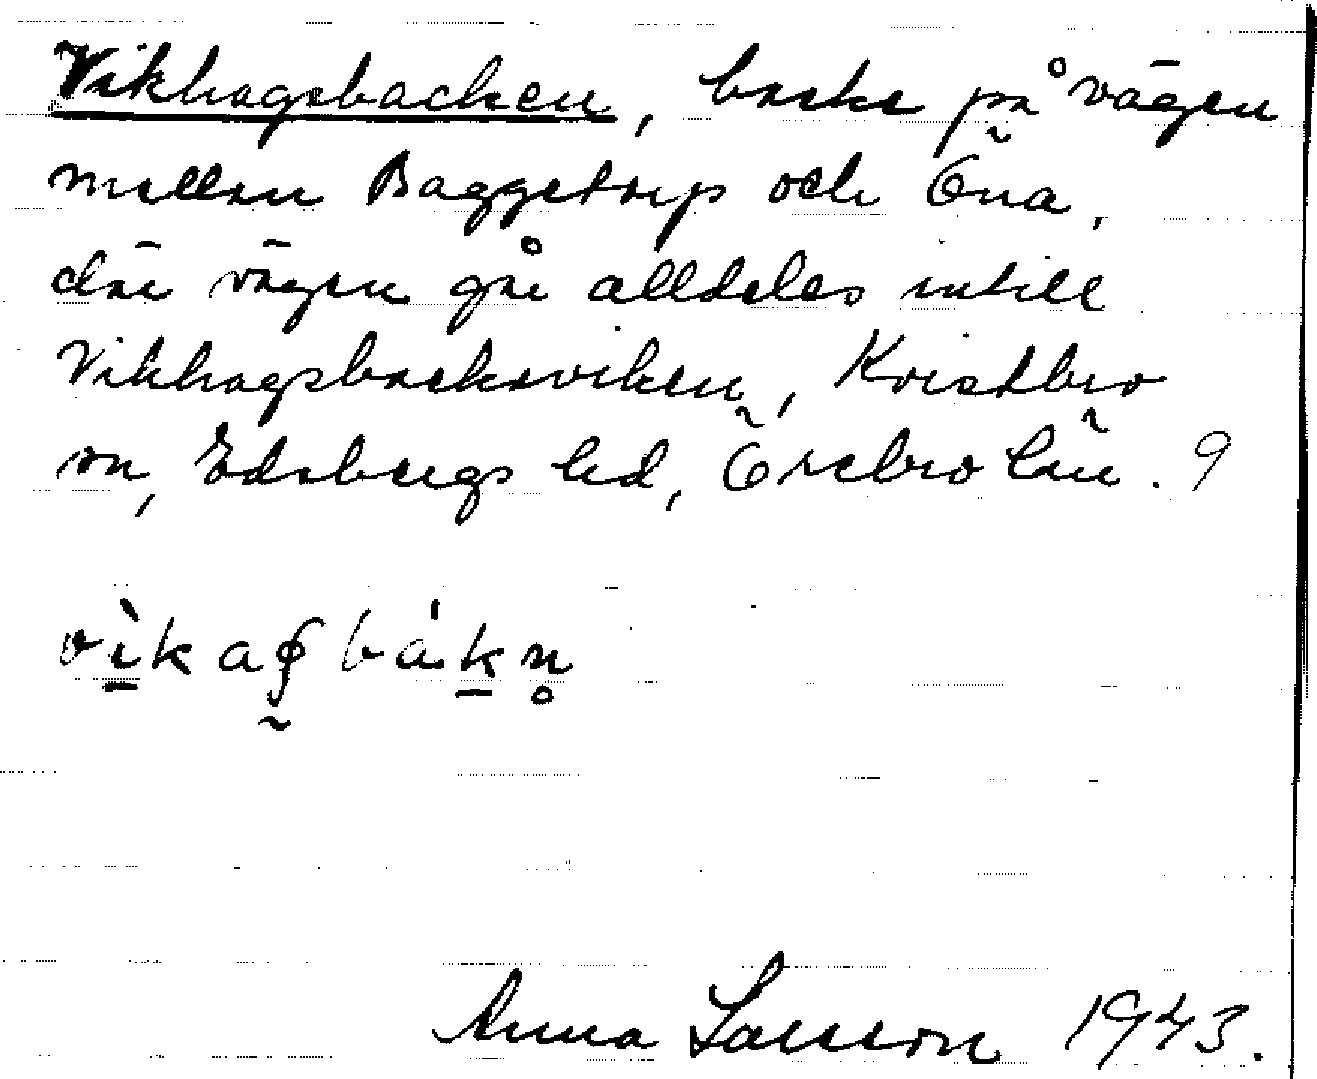 Vikhagsbacken, backe på vägen
mellan Baggetorp och Öna,
där vägen går alldeles intill
Vikhagsbacksviken, Kvistbro
sn, Edsbergs hd, Örebro län. 9
Anna Larsson 1943.